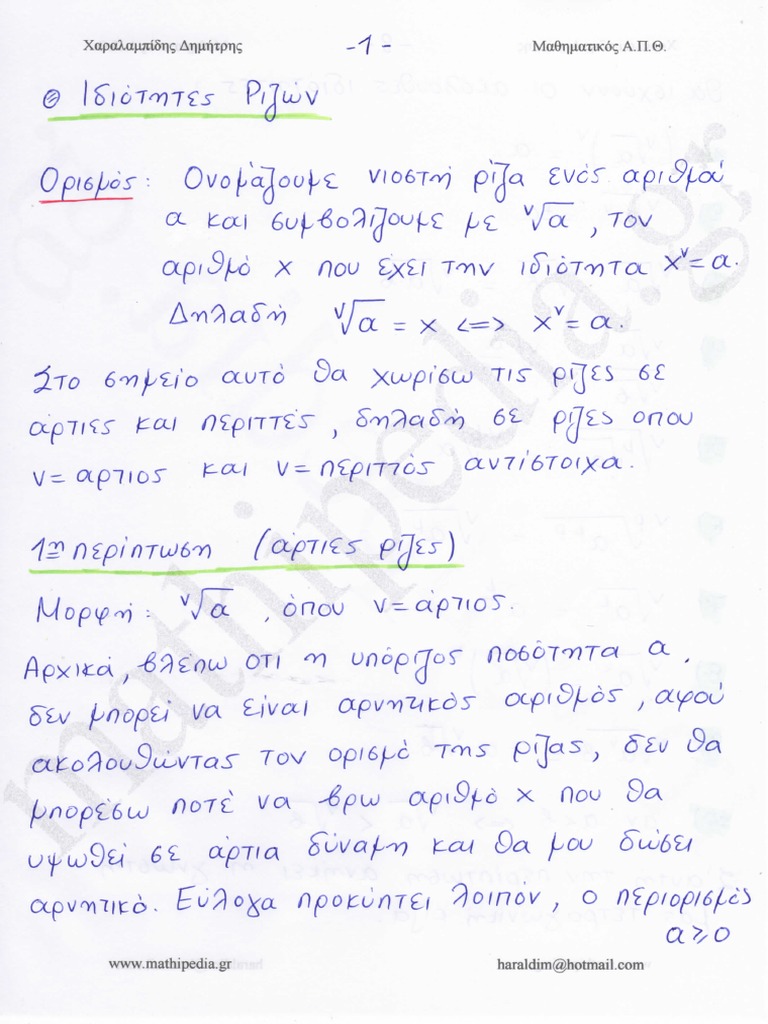 Χαραλαμπίδης Δημήτρης -1- Μαθηματικός Α.Π.Θ.
Ιδιότητες Ριζών
Ορισμός: Ονομάζουμε νιοστή ρίζα ενός αριθμού
α και συμβολίζουμε με ᵛ√α, τον
αριθμό x που έχει την ιδιότητα xᵛ=α.
Δηλαδή ᵛ√α = x <=> xᵛ=α.
Στο σημείο αυτό θα χωρίσω τις ρίζες σε
άρτιες και περιττές, δηλαδή σε ρίζες οπου
ν=αρτιος και ν=περιττός αντίστοιχα.
1η περίπτωση (άρτιες ρίζες)
Μορφή: ᵛ√α, όπου ν=άρτιος.
Αρχικά, βλέπω οτι η υπόριζος ποσότητα α,
δεν μπορεί να είναι αρνητικός αριθμός, αφού
ακολουθώντας τον ορισμό της ρίζας, δεν θα
μπορέσω ποτέ να βρω αριθμό x που θα
υψωθεί σε άρτια δύναμη και θα μου δώσει
αρνητικό. Εύλογα προκύπτει λοιπόν, ο περιορισμός
α≥0
www.mathipedia.gr haraldim@hotmail.com
mathipedia.gr